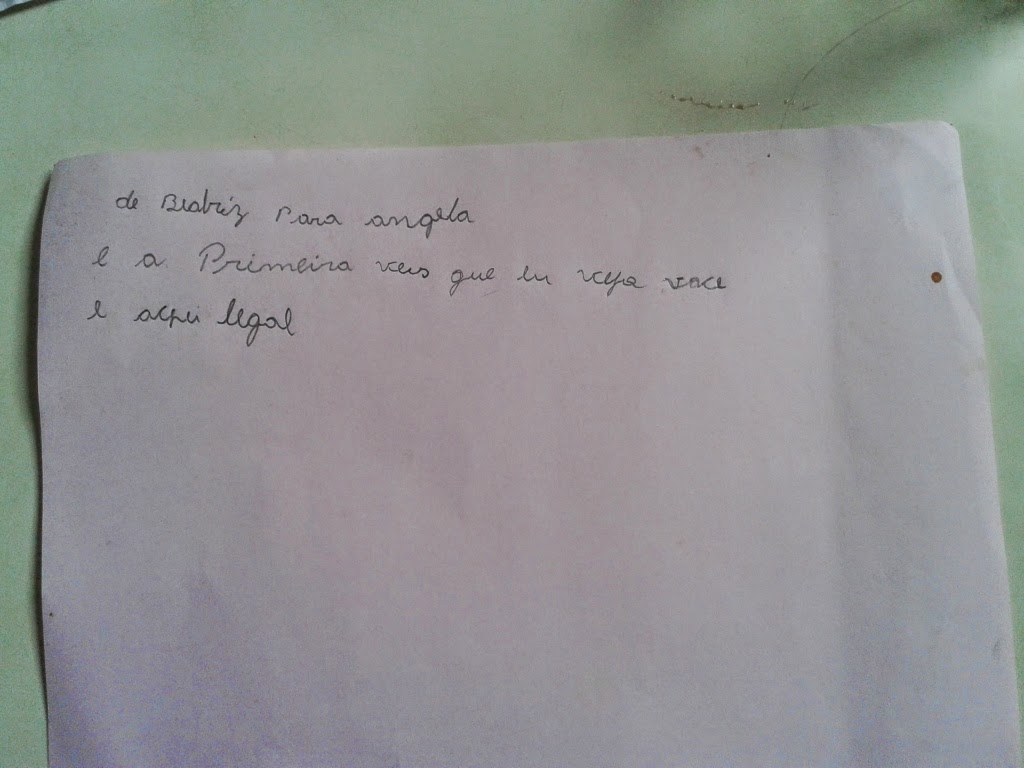 de Beatriz Para angela
e a Primeira veis que eu veja voce
e achei legal